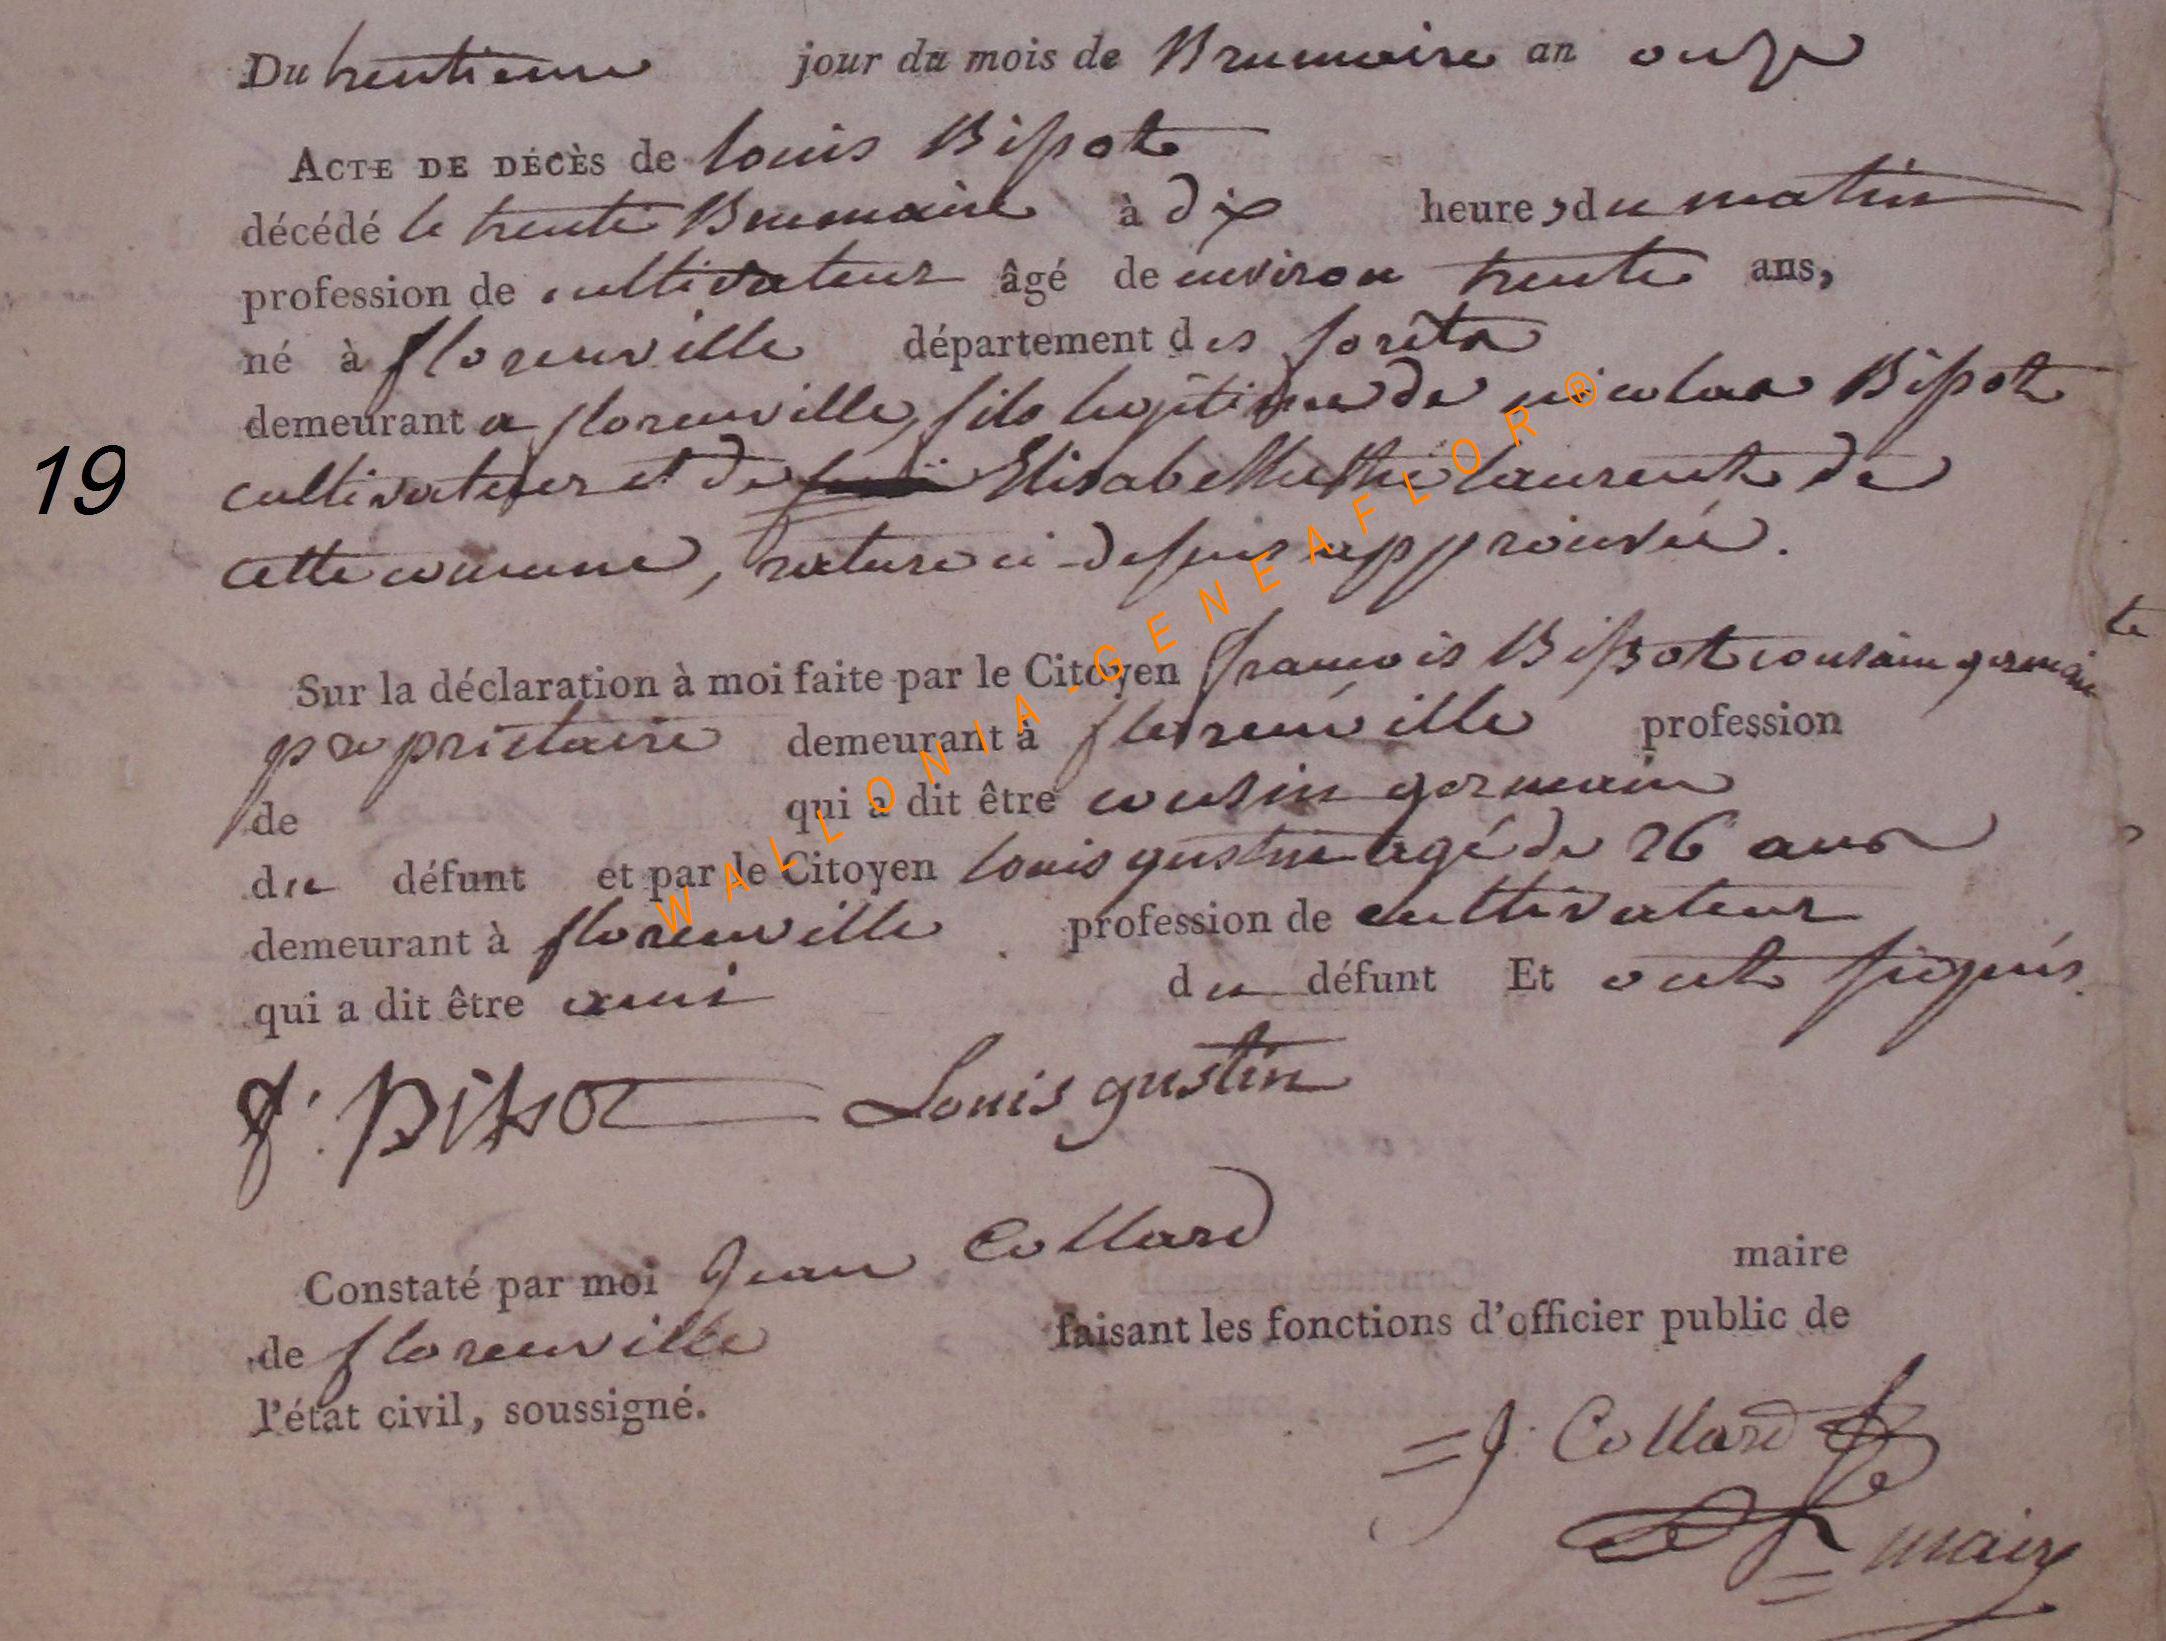 Du trentieme jour du mois de Brumaire an onze
ACTE DE DÉCÈS de louis Bissot
décédé le trente Brumaire à dix heures du matin
profession de cultivateur âgé de environ trente ans,
né à florenville département des forêts
demeurant a florenville, fils legitime de nicolas Bissot
19
cultivateur et de Elisabeth laurent de
cette comune, rature ci-dessus approuvée.
te
Sur la déclaration à moi faite par le Citoyen francois Bissot cousin germain
propriétaire demeurant à florenville profession
de qui a dit être cousin germain
du défunt et par le Citoyen louis gustin agé de 26 ans
demeurant à florenville profession de cultivateur
qui a dit être ami du défunt Et ont signés
f. Bissot Louis gustin
Constaté par moi Jean Collard maire
de florenville faisant les fonctions d'officier public de
l'état civil, soussigné.
= J. Collard
maire
WALLONIA-GENEAFLOR®